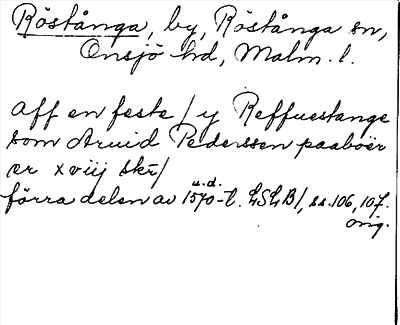 Röstånga, by, Röstånga sn,
Onsjö hd, Malm. l.
Aff en feste / y Reffuestange
som Aruid Pederssen paaboer
er xviij skr/
u.d.
förra delen av 1570-t. LSLB/, ss. 106, 107.
orig.